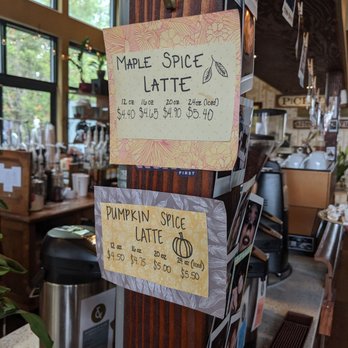 MAPLE SPICE
LATTE
12 oz 16 oz 20 oz 24 oz (iced)
$4.40 $4.65 $4.90 $5.40
FIRST
PUMPKIN SPICE
LATTE
12 oz 16 oz 20 oz 24 oz (iced)
$4.50 $4.75 $5.00 $5.50
&